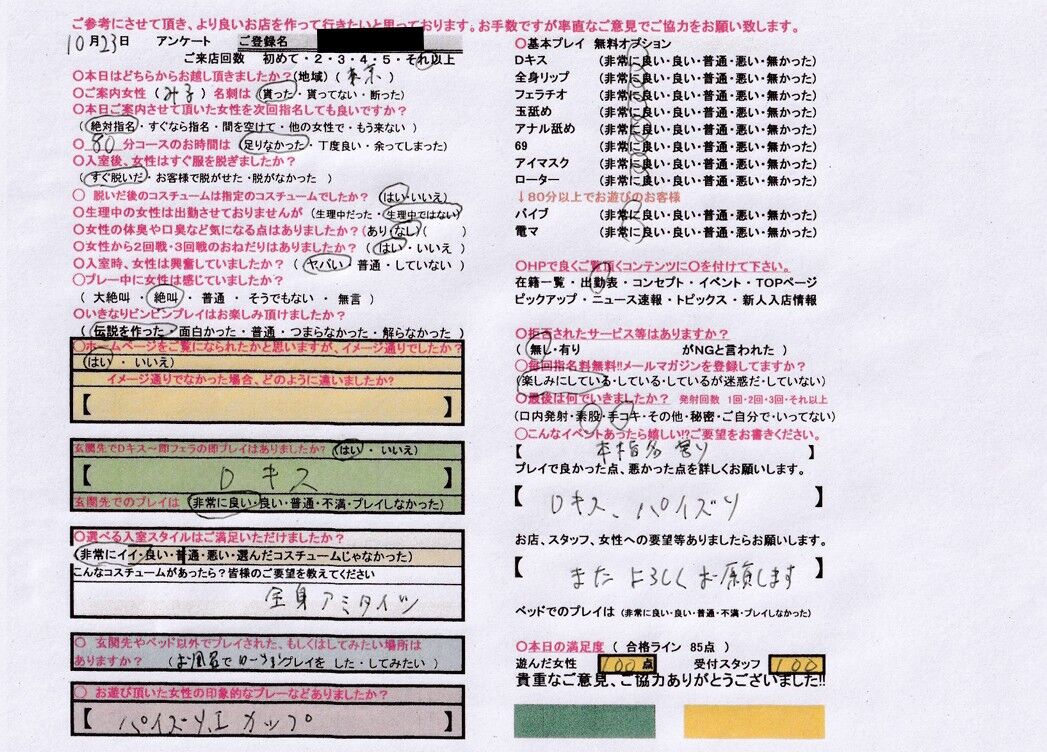 ご参考にさせて頂き、より良いお店を作って行きたいと思っております。お手数ですが率直なご意見でご協力をお願い致します。
10月23日 アンケート ご登録名
ご来店回数 初めて・2・3・4・5・それ以上
〇本日はどちらからお越し頂きましたか?(地域)( 東京 )
〇ご案内女性 (みる) 名刺は (貰った・貰ってない・断った)
〇本日ご案内させて頂いた女性を次回指名しても良いですか?
(絶対指名・すぐなら指名・間を空けて・他の女性で・もう来ない)
〇 80 分コースのお時間は (足りなかった・丁度良い・余ってしまった)
〇入室後、女性はすぐ服を脱ぎましたか?
(すぐ脱いだ・お客様で脱がせた・脱がなかった)
〇 脱いだ後のコスチュームは指定のコスチュームでしたか? (はい・いいえ)
〇生理中の女性は出勤させておりませんが (生理中だった・生理中ではない)
〇女性の体臭や口臭など気になる点はありましたか?(あり・なし)( )
〇女性から2回戦・3回戦のおねだりはありましたか? (はい・いいえ)
〇入室時、女性は興奮していましたか? (ヤバい・普通・していない)
〇プレー中に女性は感じていましたか?
( 大絶叫・絶叫・普通・そうでもない・無言 )
〇いきなりビンビンプレイはお楽しみ頂けましたか?
(伝説を作った・面白かった・普通・つまらなかった・解らなかった)
〇ホームページをご覧になられたかと思いますが、イメージ通りでしたか?
(はい・いいえ)
イメージ通りでなかった場合、どのように違いましたか?
【 】
玄関先でDキス～即フェラの即プレイはありましたか? (はい・いいえ)
【 Dキス 】
玄関先でのプレイは (非常に良い・良い・普通・不満・プレイしなかった)
〇選べる入室スタイルはご満足いただけましたか?
(非常にイイ・良い・普通・悪い・選んだコスチュームじゃなかった)
こんなコスチュームがあったら?皆様のご要望を教えてください
全身アミタイツ
〇 玄関先やベッド以外でプレイされた、もしくはしてみたい場所は
ありますか? (お風呂で ローションプレイを した・してみたい)
〇 お遊び頂いた女性の印象的なプレーなどありましたか?
【 パイズリ、エカップ 】
〇基本プレイ 無料オプション
Dキス (非常に良い・良い・普通・悪い・無かった)
全身リップ (非常に良い・良い・普通・悪い・無かった)
フェラチオ (非常に良い・良い・普通・悪い・無かった)
玉舐め (非常に良い・良い・普通・悪い・無かった)
アナル舐め (非常に良い・良い・普通・悪い・無かった)
69 (非常に良い・良い・普通・悪い・無かった)
アイマスク (非常に良い・良い・普通・悪い・無かった)
ローター (非常に良い・良い・普通・悪い・無かった)
↓80分以上でお遊びのお客様
バイブ (非常に良い・良い・普通・悪い・無かった)
電マ (非常に良い・良い・普通・悪い・無かった)
〇HPで良くご覧頂くコンテンツに〇を付けて下さい。
在籍一覧・出勤表・コンセプト・イベント・TOPページ
ピックアップ・ニュース速報・トピックス・新人入店情報
〇拒否されたサービス等はありますか?
(無し・有り がNGと言われた )
〇毎回指名料無料!!メールマガジンを登録してますか?
(楽しみにしている・している・しているが迷惑だ・していない)
〇最後は何でいきましたか? 発射回数 1回・2回・3回・それ以上
(口内発射・素股・手コキ・その他・秘密・ご自分で・いってない)
〇こんなイベントあったら嬉しい!?ご要望をお書きください。
【 本指名割り 】
プレイで良かった点、悪かった点を詳しくお願いします。
【 Dキス、パイズリ 】
お店、スタッフ、女性への要望等ありましたらお願いします。
【 またよろしくお願します 】
ベッドでのプレイは (非常に良い・良い・普通・不満・プレイしなかった)
〇本日の満足度 ( 合格ライン 85点 )
遊んだ女性 100点 受付スタッフ 100
貴重なご意見、ご協力ありがとうございました!!